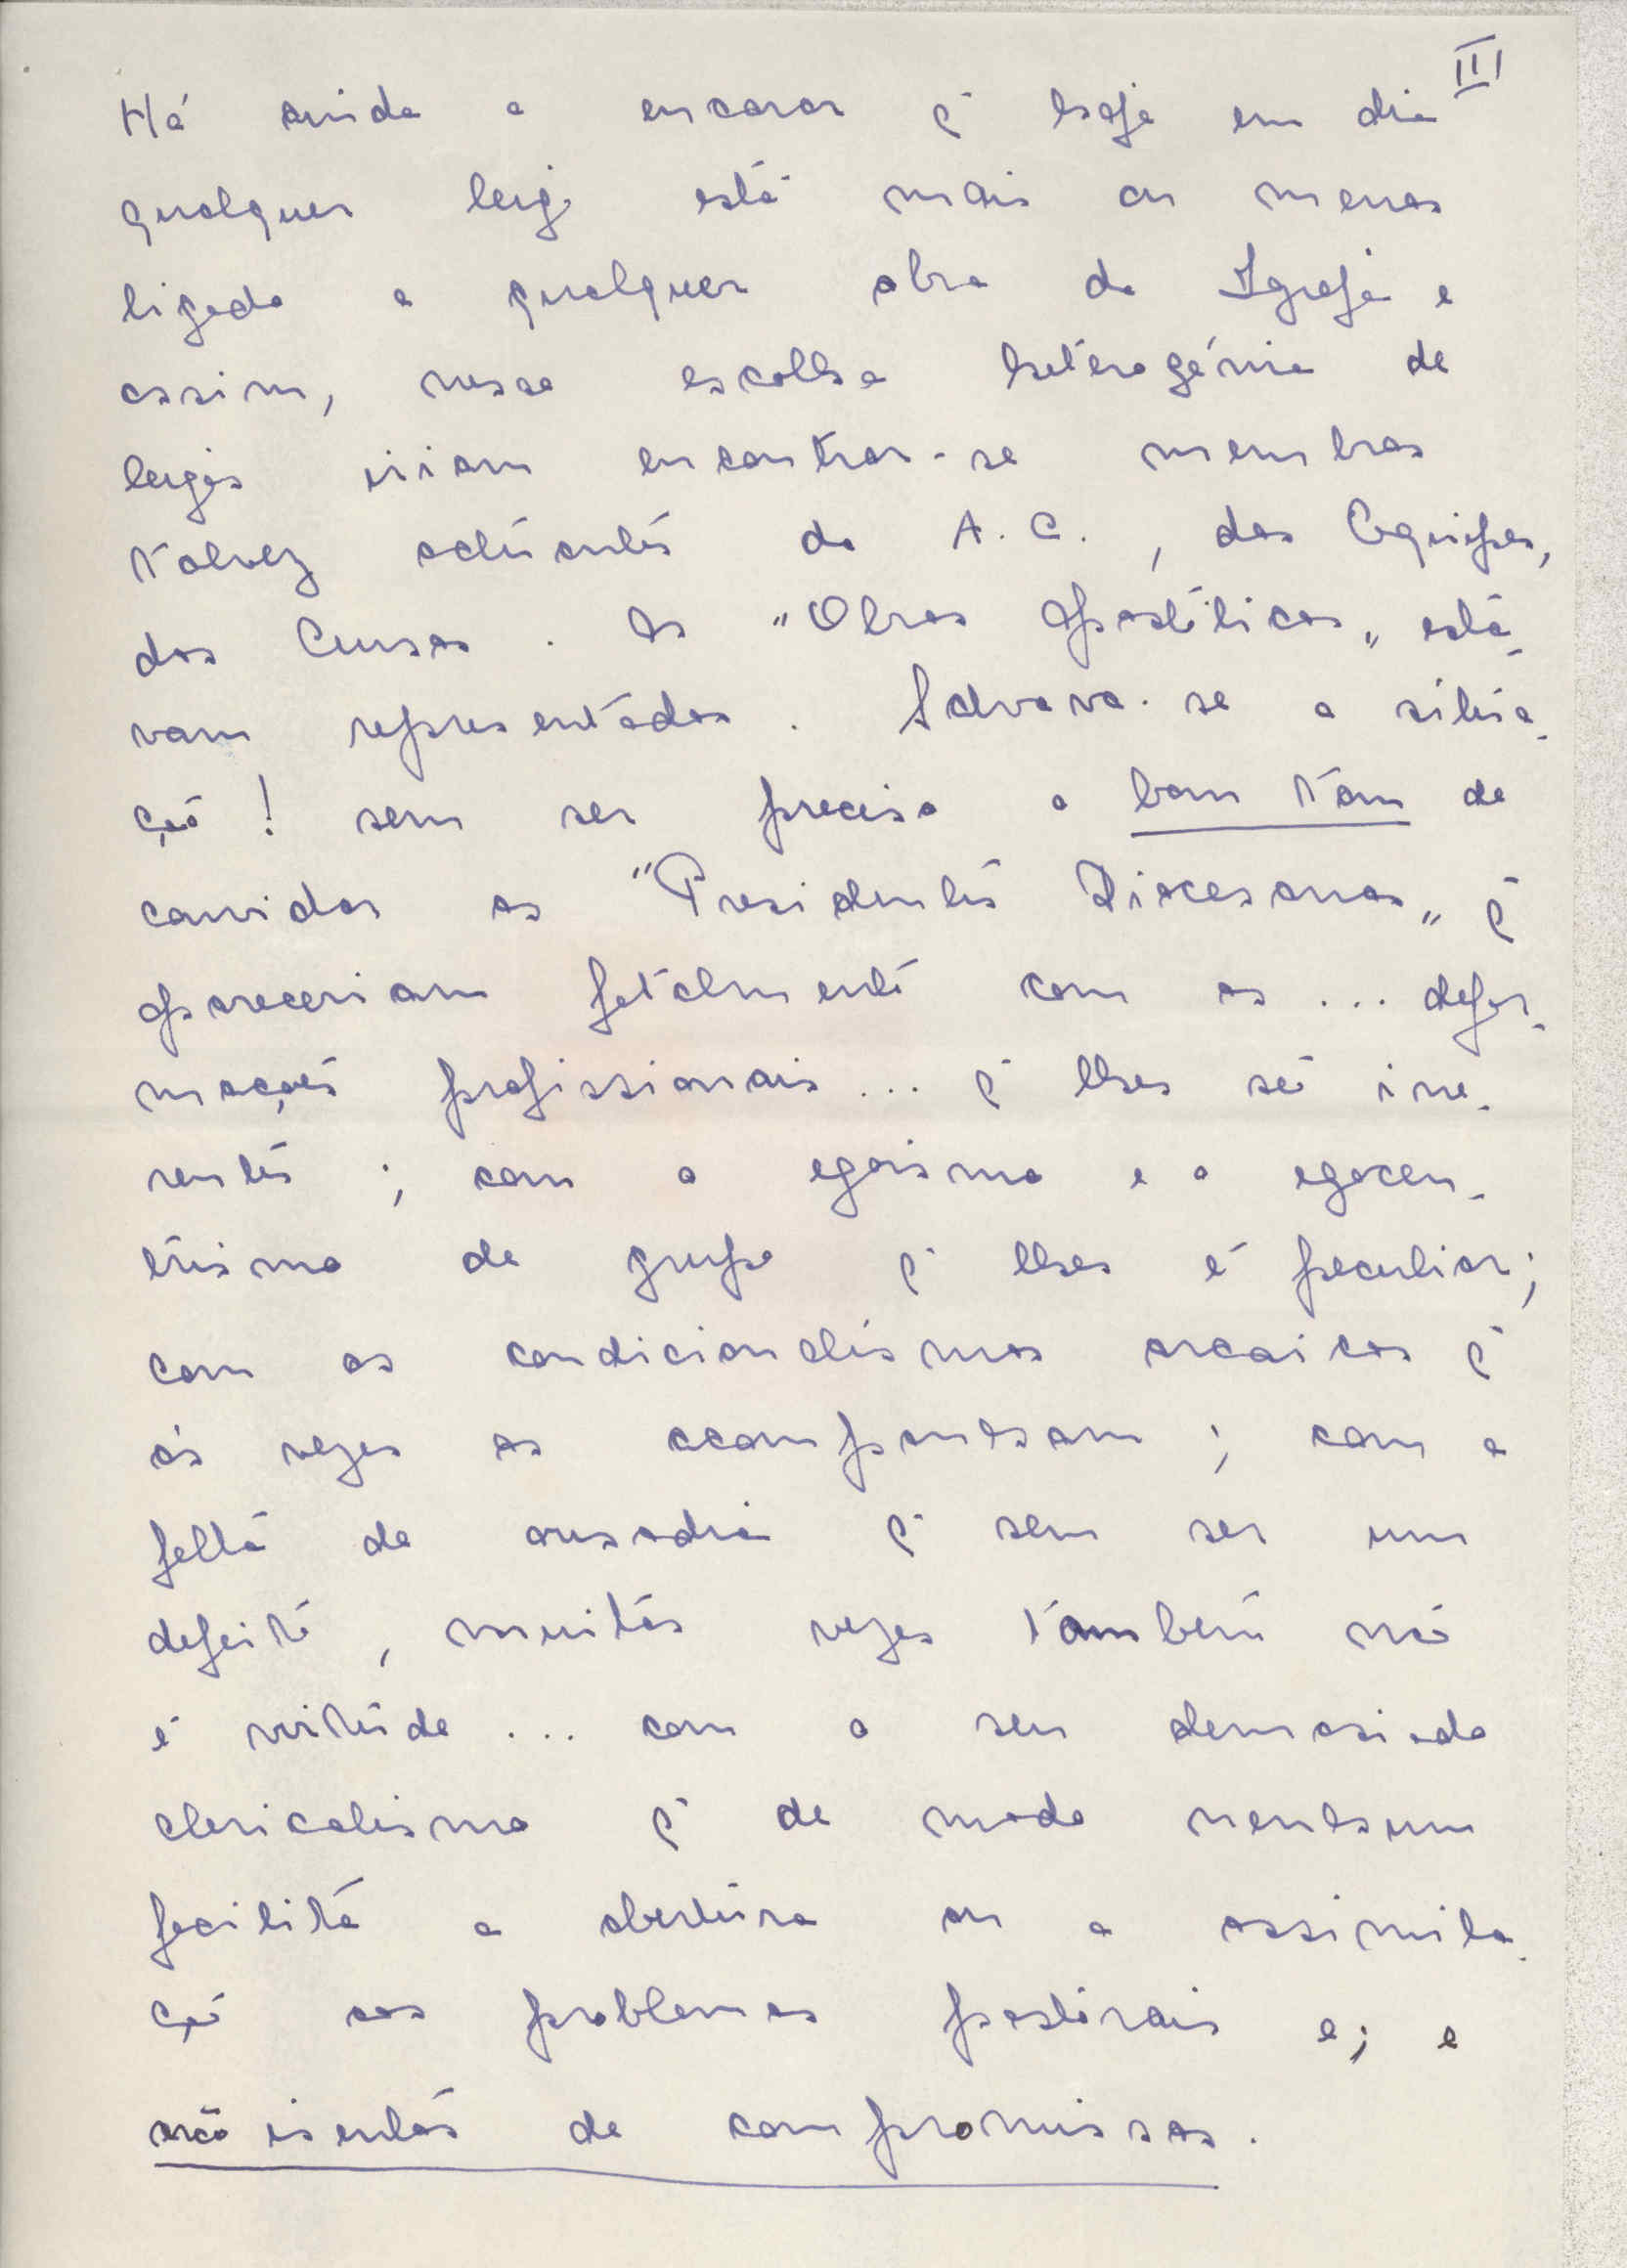 III
Há ainda a encarar q̃ hoje em dia
qualquer leigo está mais ou menos
ligado a qualquer obra da Igreja e
assim, nessa escolha heterogénia de
leigos iriam encontrar-se membros
talvez actuantes da A.C., das Equipes,
dos Cursos. As "Obras Apostólicas" esta-
vam representadas. Salvava-se a situa-
ção! sem ser preciso o bom tom de
convidar os "Presidentes Diocesanos" q̃
apareceriam fatalmente com as ... defor-
mações profissionais ... q̃ lhes são ine-
rentes; com o egoismo e o egocen-
trismo de grupo q̃ lhes é peculiar;
com os condicionalismos arcaicos q̃
ás vezes os acompanham; com a
falta de ousadia q̃ sem ser um
defeito, muitas vezes também não
é virtude ... com o seu demasiado
clericalismo q̃ de modo nenhum
facilita a abertura ou a assimila-
ção aos problemas pastorais e; e
não isentos de compromissos.